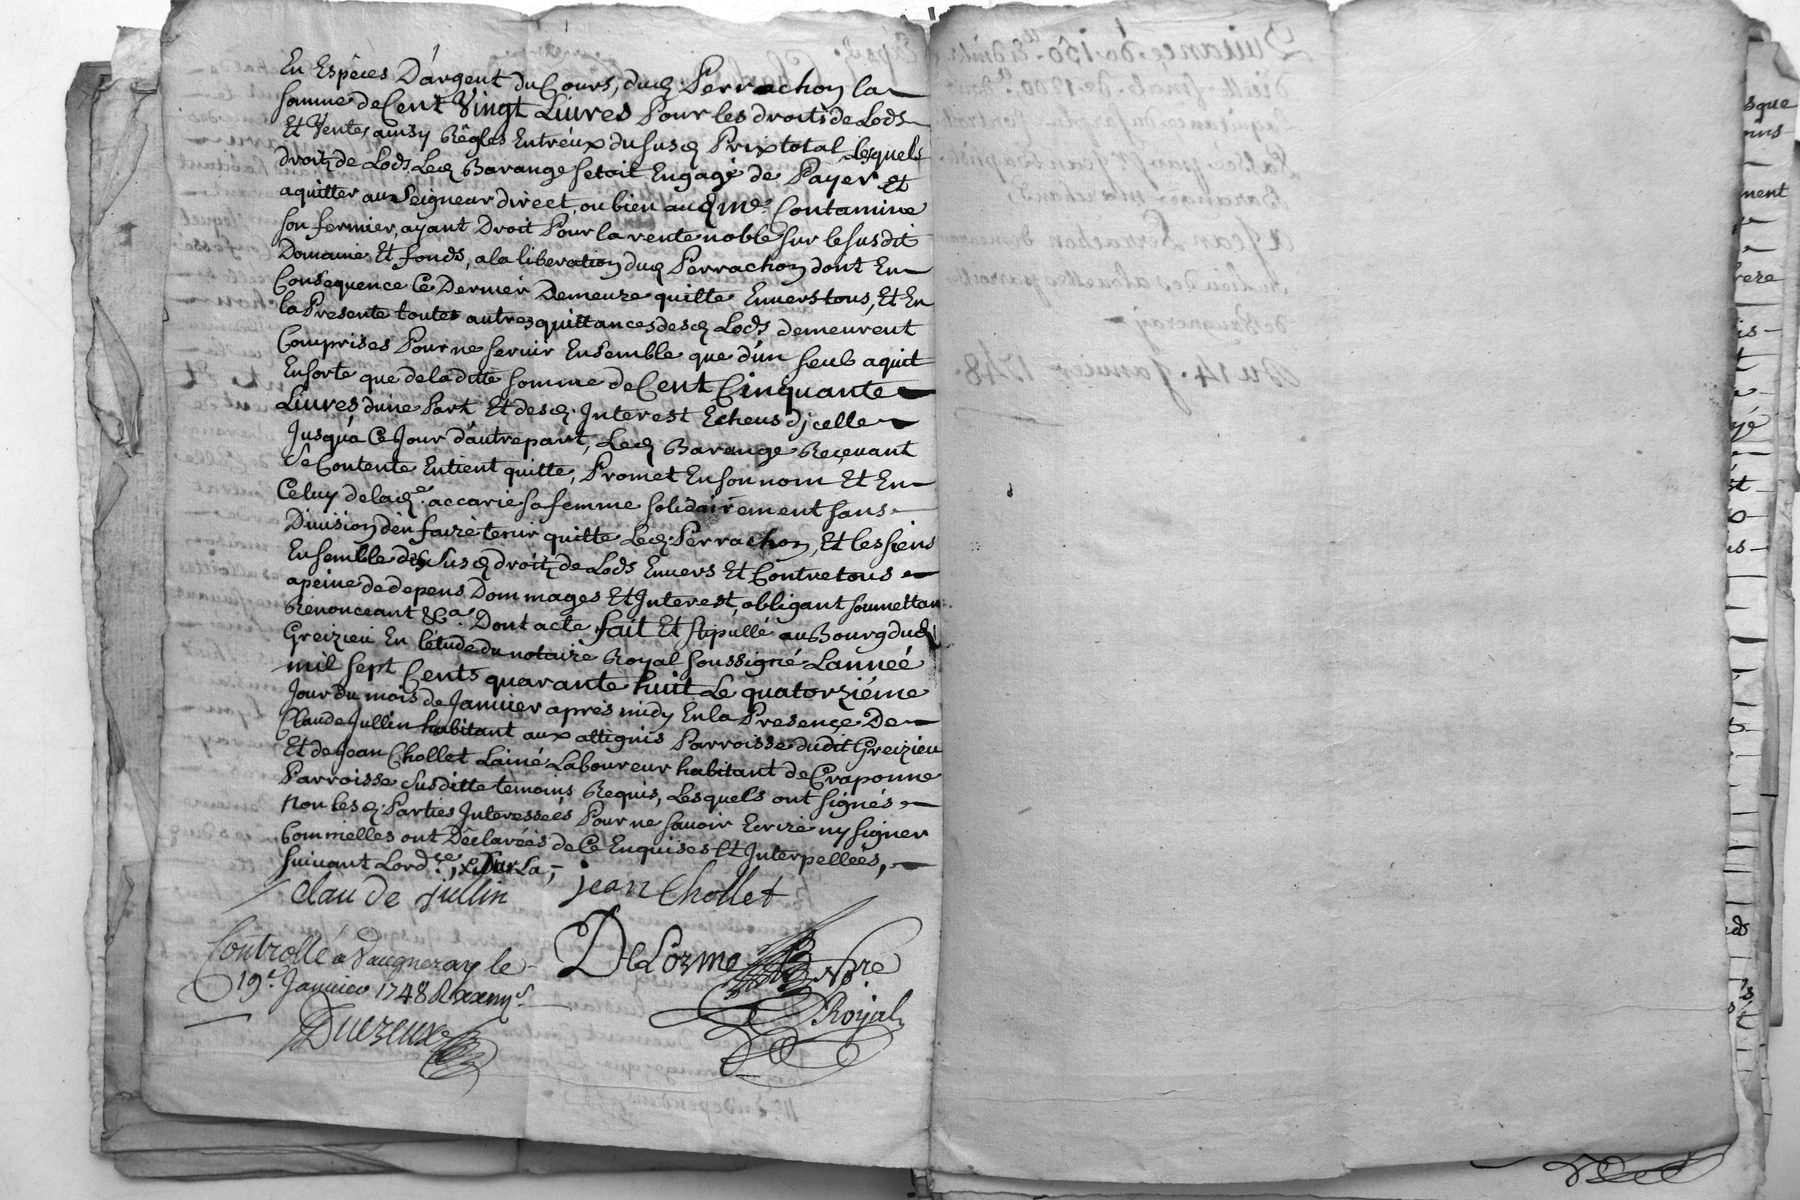 En Espéces D'argent du Cours, dud. Perrachon la
somme de Cent Vingt Livres Pour les droits de Lods
Et Ventes ainsy Réglés Entréux du susd. Prix total, desquels
droits de Lods, Led. Barange setoit Engagé de Payer et
aquitter au Seigneur direct, ou bien aud. Mr. Contamine
son fermier, ayant Droit Pour la rente noble sur le susdit
Domaine Et fonds, a la liberation dud. Perrachon dont En
Consequence Ce Dernier Demeure quitte Envers tous, Et En
la Presente toutes autres quittances desd. Lods demeurent
Comprises Pour ne servir Ensemble que d'un seul aquit
Ensorte que de la ditte somme de Cent Cinquante
Livres d'une Part Et desd. Interest Echeus dycelle
Jusqu'a Ce Jour d'autre part, Led. Barange Reçevant
Se Contente Entient quitte, Promet En son nom Et En
Celuy de lad.e accarie sa femme solidairement sans
Division d'en faire tenir quitte Led. Perrachon, Et les siens
Ensemble des Susd. droits de Lods Envers Et Contre tous
apeine de depens Dommages Et Interest, obligant soumettan
Renonceant &Ca. Dont acte fait Et stipullé au Bourg dud.
Greizieu En l'etude du notaire Royal soussigné Lanneé
mil sept Cents quarante huit Le quatorziéme
Jour du mois de Janvier aprés midy En la Presençe De
Claude Jullin habitant aux attignis Parroisse dudit Greizieu
Et de Jean Chollet Lainé Laboureur habitant de Craponne
Parroisse Susditte temoins Requis, Lesquels ont signés
Non les d. Parties Interesseés Pour ne savoir Ecrire ny signer
Commelles ont Déclareés de Ce Enquises Et Interpelleés,
suivant Lord.ce,
claude jullin jean Chollet
DeLorme Nre
Royal
Controllé a Vaugneray le
19e. Janvier 1748 R
Duereux